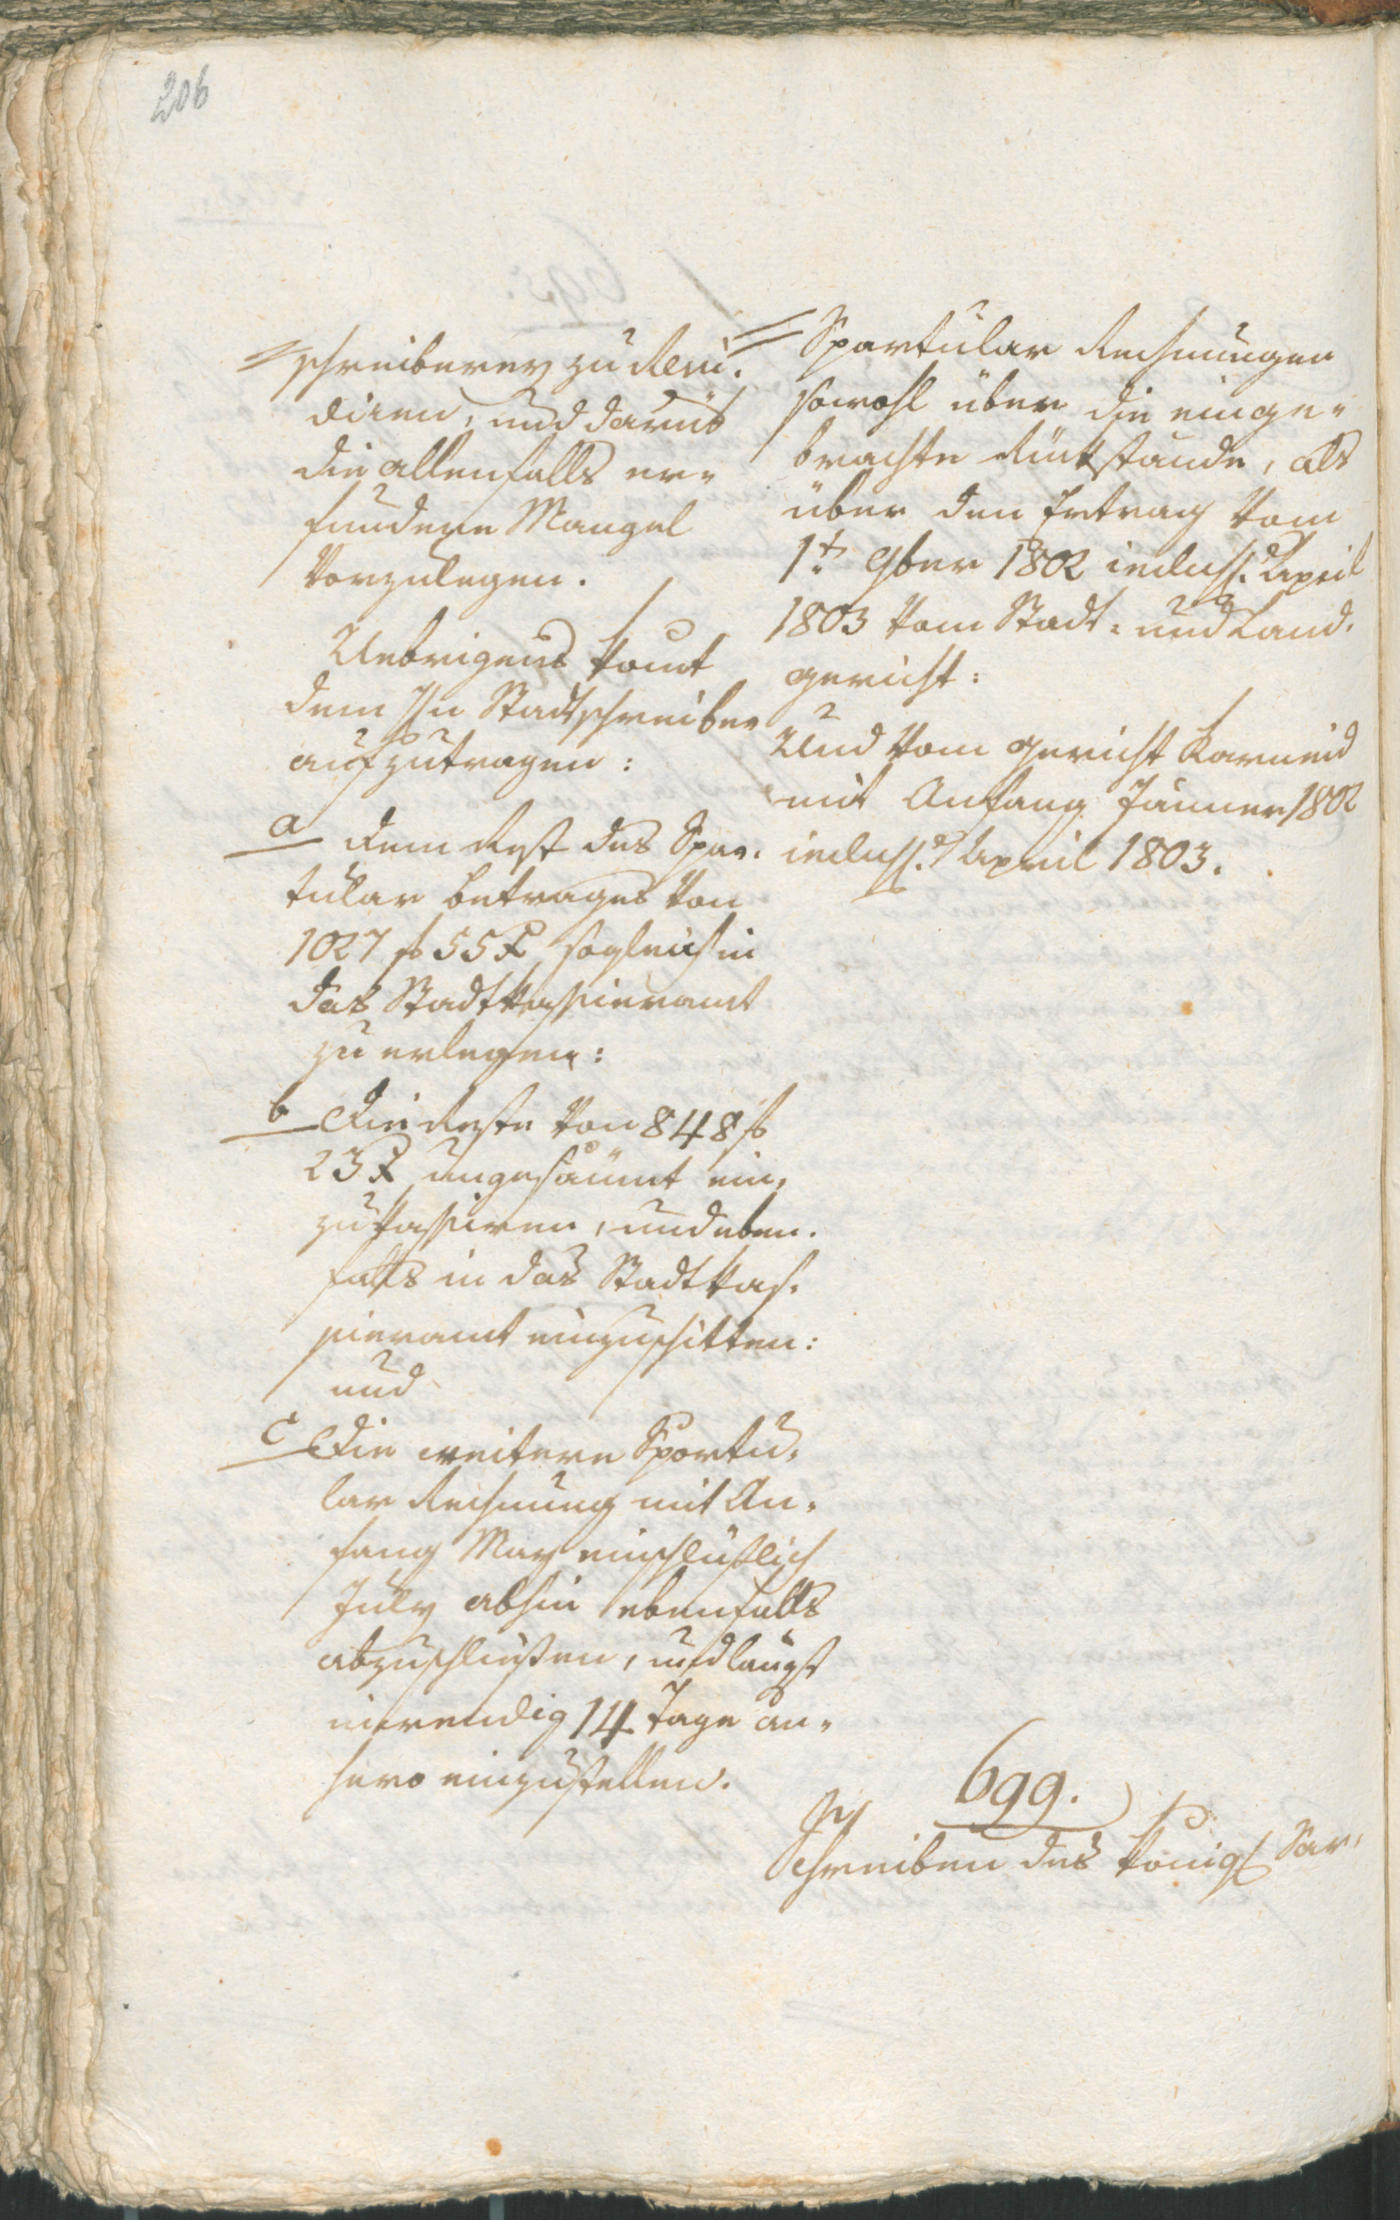 206
schreiberey zu Revi-
diren, und daraus
die allenfalls er-
fundene Mangel
vorzulegen.
Uebrigens komt
dem Hn Stadtschreiber
aufzutragen:
a dem Rest des Spor-
tular Betrages von
1027 f 55 x sogleich in
das Stadtkassieramt
zu erlegen:
b Die Reste von 848 f
23 x ungesäumt ein-
zukassiren, und eben-
falls in das Stadtkas-
sieramt einzuschitten:
und
c Die weitere Sportu-
lar Rechnung mit An-
fang May einschlüßlich
July abhin ebenfalls
abzuschlüßen, und längst
inwendig 14 Tage an-
hero einzustellen.
Sportular Rechnungen
sowohl über die einge-
brachte Rückstände, als
über den Ertrag vom
1t 9ber 1802 incluss. April
1803 vom Stadt- und Land-
gericht:
Und vom Gericht Karneid
mit Anfang Jänner 1802
incluss. April 1803.
699.
Schreiben des königl Sar-